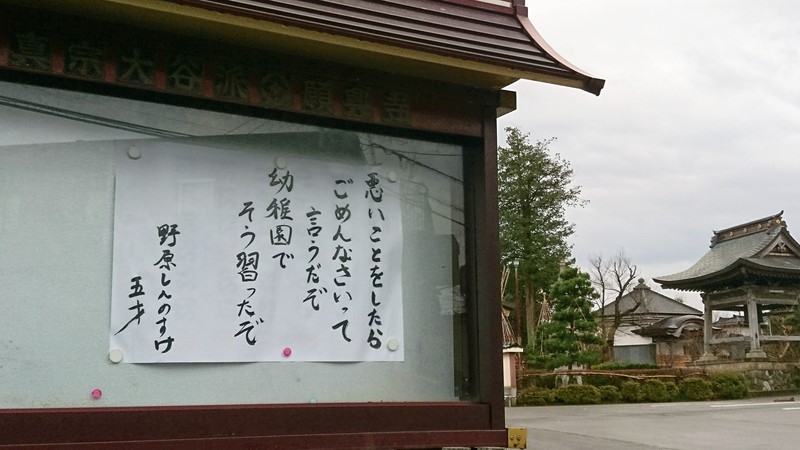 真宗大谷派
寺
悪いことをしたら
ごめんなさいって
言うだぞ
幼稚園で
そう習ったぞ
野原しんのすけ
五才